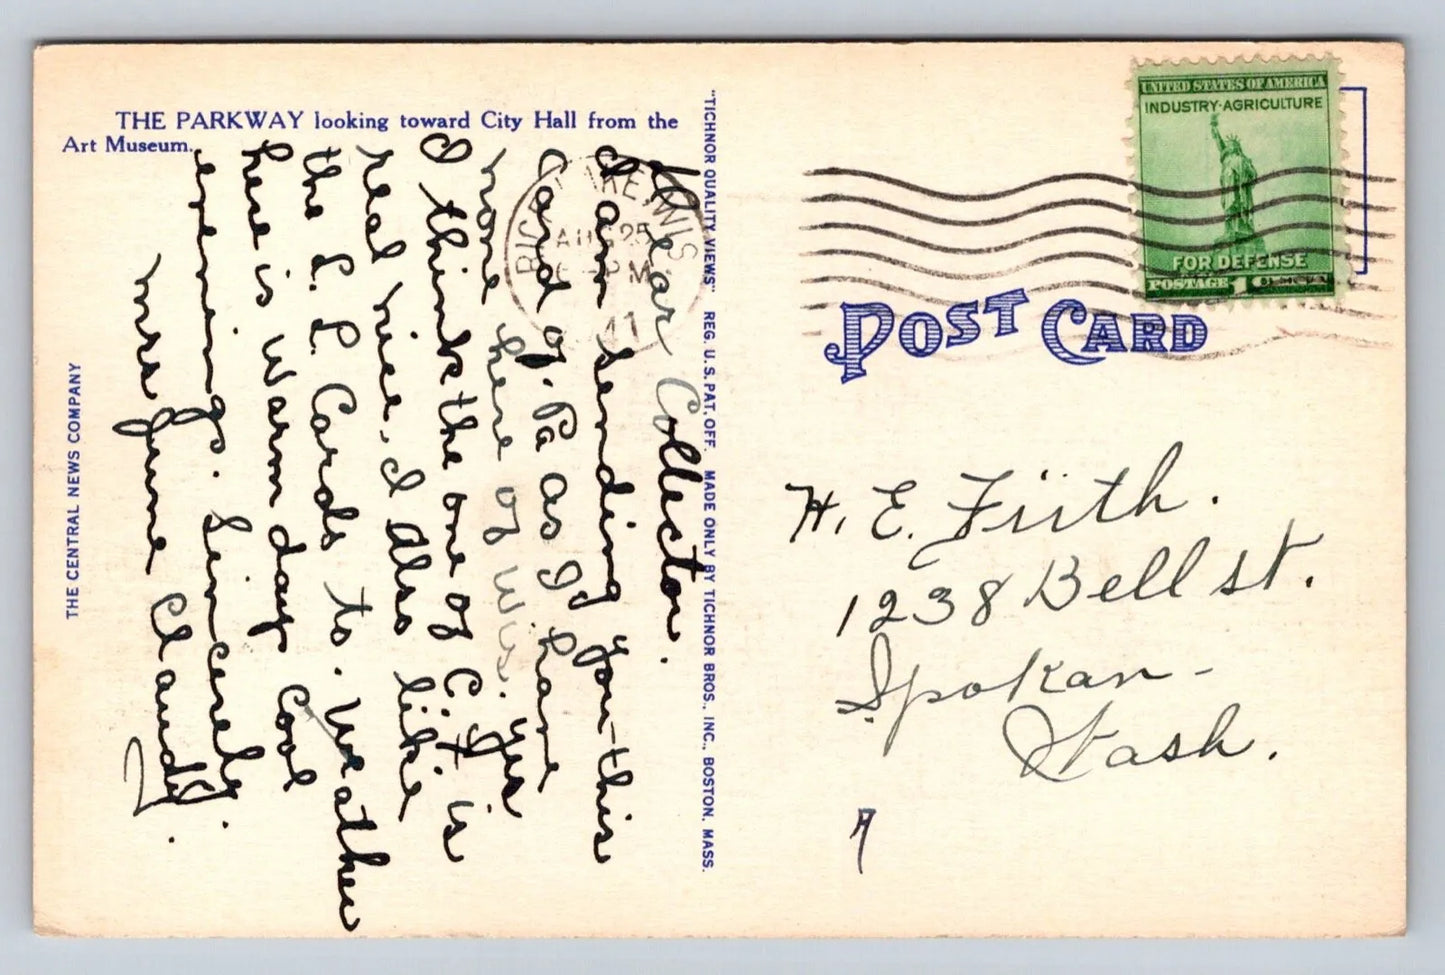 THE PARKWAY looking toward City Hall from the
Art Museum.
Dear Collector.
I am sending you this
Card of Pa as I have
none here of Wis. yes
I think the one of C.T is
real nice, I also like
the L. L. Cards to. Weather
here is warm day Cool
evenings. Sincerely.
Mrs June Claudy.
THE CENTRAL NEWS COMPANY
"TICHNOR QUALITY VIEWS" REG. U. S. PAT. OFF. MADE ONLY BY TICHNOR BROS., INC., BOSTON, MASS.
RICE LAKE, WIS
AUG 25
PM
41
UNITED STATES OF AMERICA
INDUSTRY·AGRICULTURE
FOR DEFENSE
POSTAGE 1
POST CARD
H. E. Fiith.
1238 Bell st.
Spokan-
Wash.